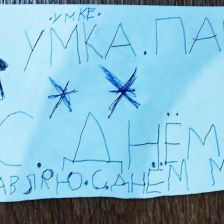 УМКЕ.
УМКА.ПА
С.ДНЁМ
АВЛЯЮ.С.ДНЁМ М